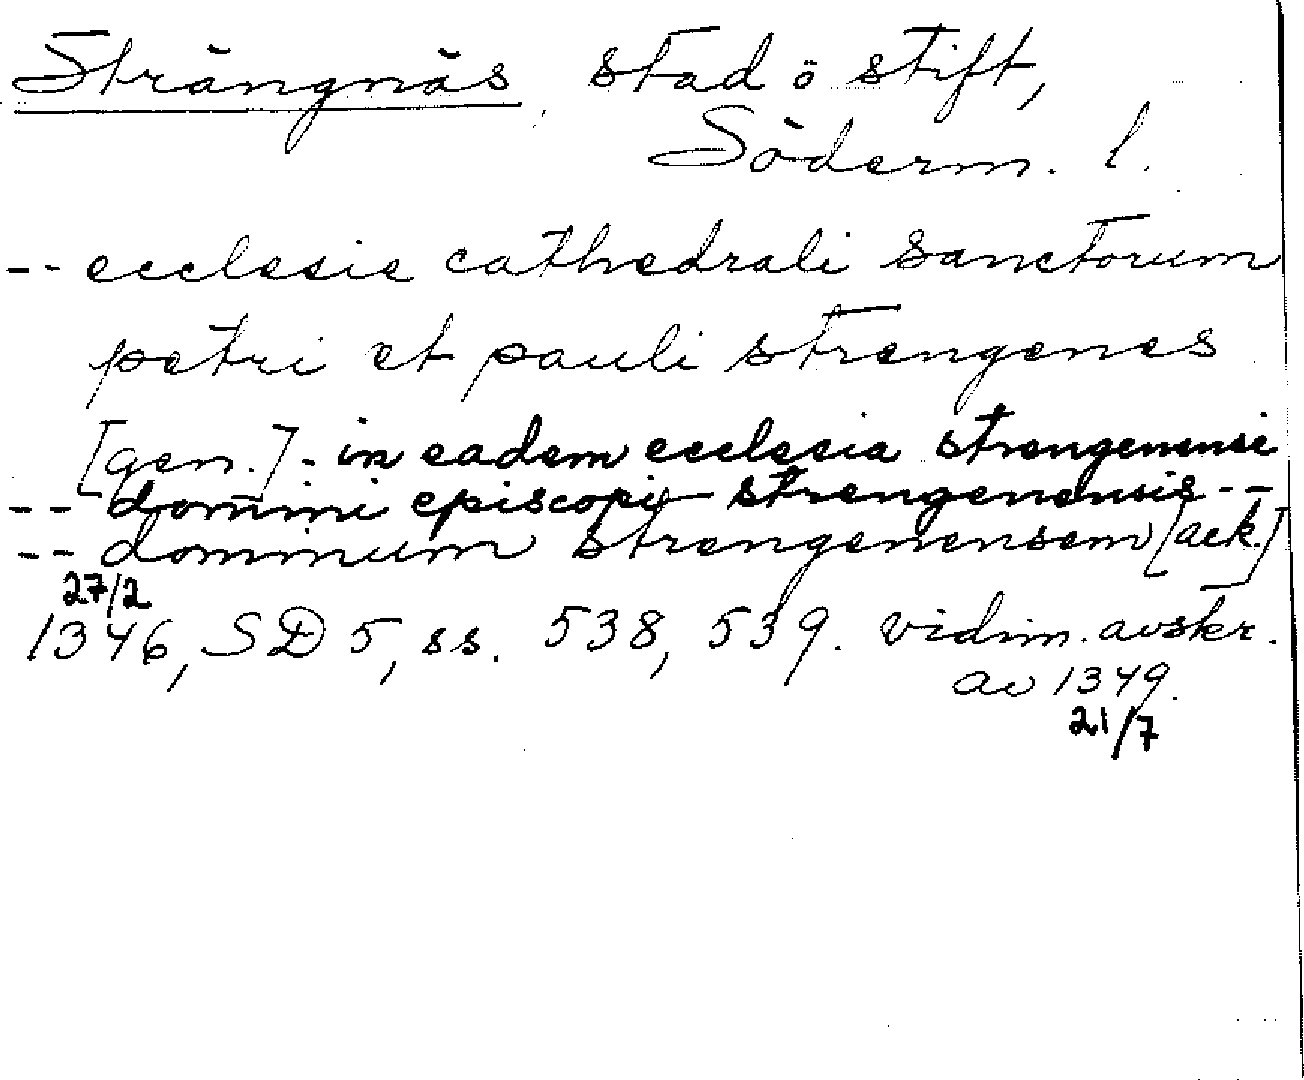 Strängnäs, stad o stift,
Söderm. l.
-- ecclesie cathedrali sanctorum
petri et pauli strengenes
[gen.] - in eadem ecclesia strengenensi
-- domini episcopi strengenensis --
-- dominum strengenensem [ack.]
27/2
1346, SD 5, ss. 538, 539. vidim. avskr.
av 1349.
21/7